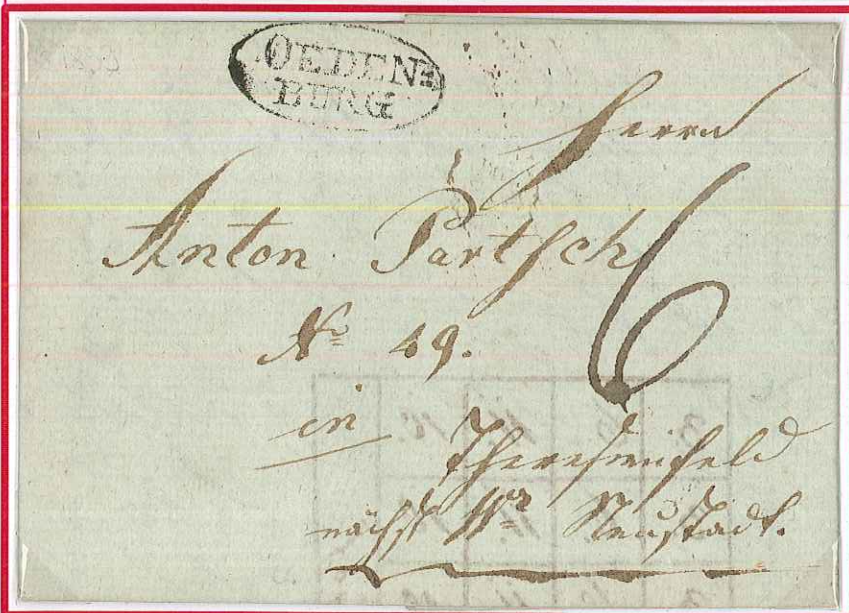 OEDEN=
BURG
Herrn
Anton Partsch
6
No 49.
in
Theresienfeld
nächst Wr Neustadt.